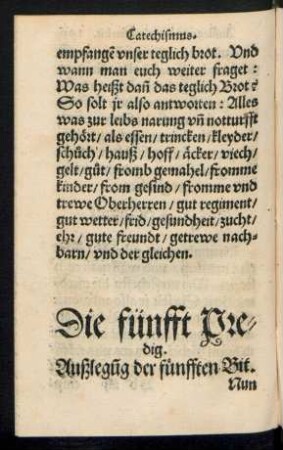 Catechismus.
empfangẽ vnser teglich brot. Vnd
wann man euch weiter fraget:
Was heißt dañ das teglich Brot?
So solt jr also antworten: Alles
was zur leibs narung vñ notturfft
gehört/ als essen/ trincken/ kleyder/
schůch/ hauß/ hoff/ äcker/ viech/
gelt/ gůt/ fromb gemahel/ fromme
kinder/ from gesind/ fromme vnd
trewe Oberherren/ gut regiment/
gut wetter/ frid/ gesundheit/ zucht/
ehr/ gute freundt/ getrewe nach-
barn/ vnd der gleichen.
Die fünfft Pre-
dig.
Außlegũg der fünfften Bit.
Nun